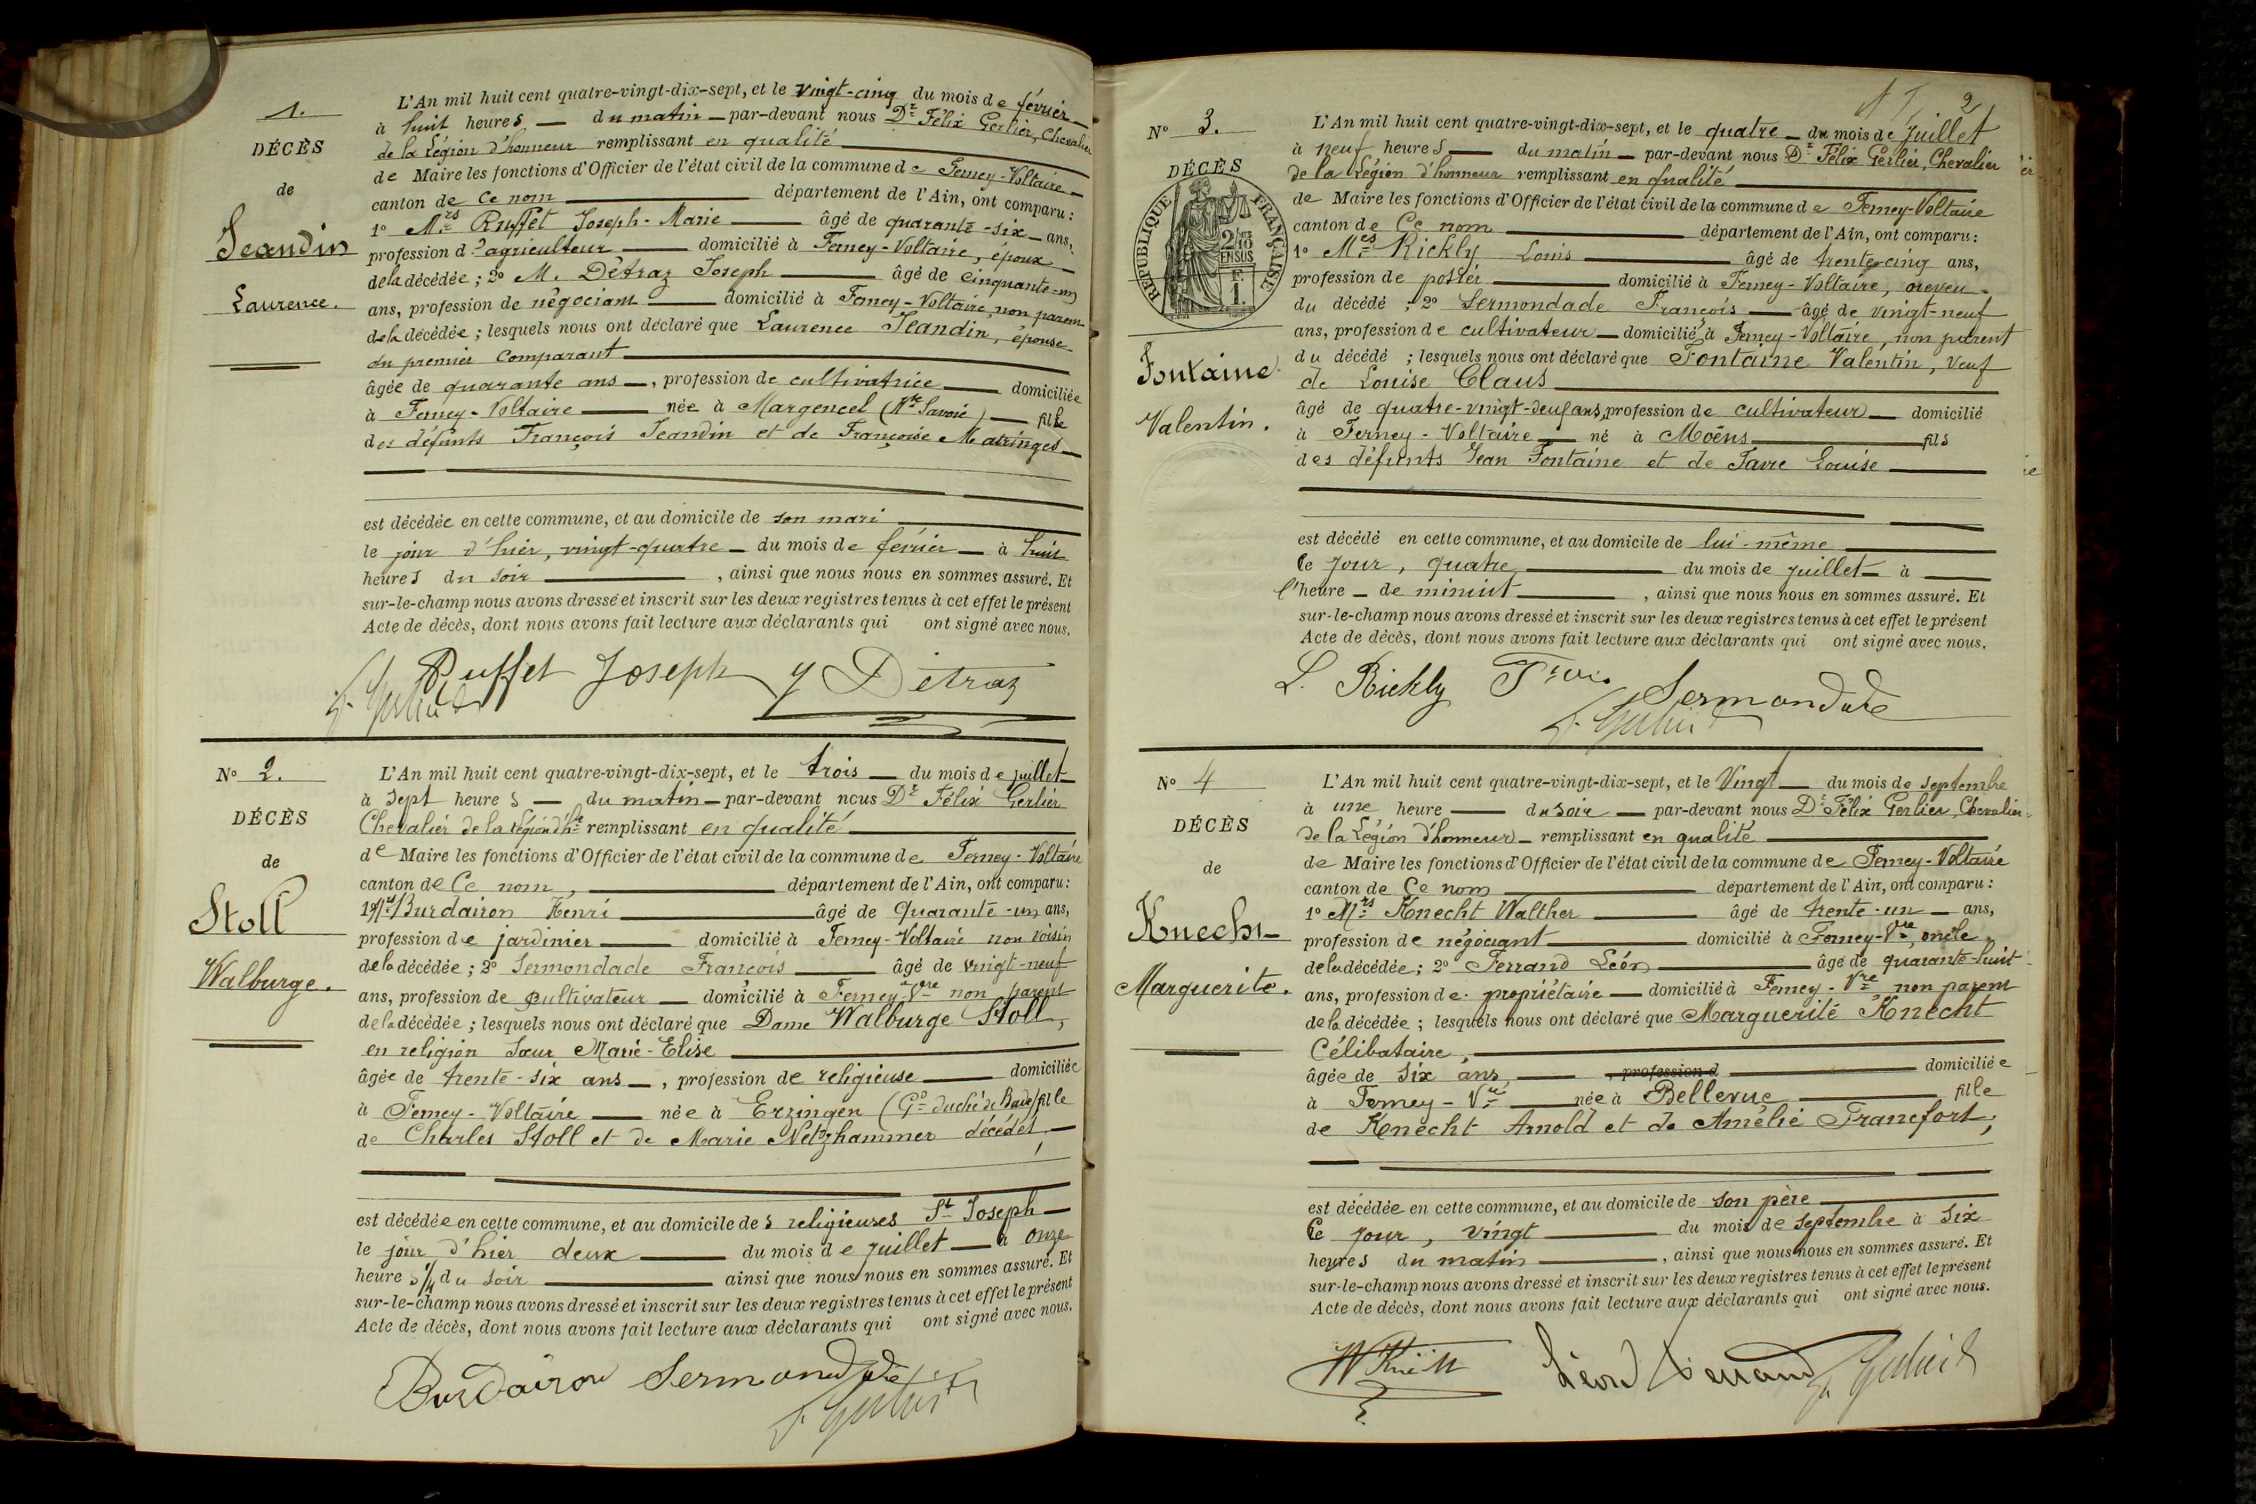 1.
DÉCÈS
de
Jeandin
Laurence.
L'An mil huit cent quatre-vingt-dix-sept, et le vingt-cinq du mois de février
à huit heures du matin par-devant nous Dr Félix Gerlier, Chevalier
de la Légion d'honneur remplissant en qualité
de Maire les fonctions d'Officier de l'état civil de la commune de Ferney-Voltaire
canton de Ce nom département de l'Ain, ont comparu :
1º Mrs Ruffet Joseph-Marie âgé de quarante-six ans,
profession d'agriculteur domicilié à Ferney-Voltaire, époux
de la décédée ; 2º M. Détraz Joseph âgé de cinquante-un
ans, profession de négociant domicilié à Ferney-Voltaire, non parent
de la décédée ; lesquels nous ont déclaré que Laurence Jeandin, épouse
du premier Comparant
âgée de quarante ans, profession de cultivatrice domiciliée
à Ferney-Voltaire née à Margencel (Hte Savoie) fille
des défunts François Jeandin et de Françoise Matringes
est décédée en cette commune, et au domicile de son mari
le jour d'hier, vingt-quatre du mois de février à huit
heures du soir, ainsi que nous nous en sommes assuré. Et
sur-le-champ nous avons dressé et inscrit sur les deux registres tenus à cet effet le présent
Acte de décès, dont nous avons fait lecture aux déclarants qui ont signé avec nous.
Ruffet Joseph J Détraz
F. Gerlier
Nº 2.
DÉCÈS
de
Stoll
Walburge.
L'An mil huit cent quatre-vingt-dix-sept, et le trois du mois de juillet
à sept heures du matin par-devant nous Dr Félix Gerlier
Chevalier de la Légion d'hr remplissant en qualité
de Maire les fonctions d'Officier de l'état civil de la commune de Ferney-Voltaire
canton de Ce nom, département de l'Ain, ont comparu :
1º Mrs Burdairon Henri âgé de Quarante-un ans,
profession de jardinier domicilié à Ferney-Voltaire non voisin
de la décédée ; 2º Sermondade François âgé de vingt-neuf
ans, profession de cultivateur domicilié à Ferney-Vre non parent
de la décédée ; lesquels nous ont déclaré que Dame Walburge Stoll,
en religion Sœur Marie-Elise
âgée de trente-six ans, profession de religieuse domiciliée
à Ferney-Voltaire née à Erzingen (Gd duché de Bade) fille
de Charles Stoll et de Marie Netzhammer décédés,
est décédée en cette commune, et au domicile des religieuses St Joseph
le jour d'hier deux du mois de juillet à onze
heures 1/4 du soir ainsi que nous nous en sommes assuré. Et
sur-le-champ nous avons dressé et inscrit sur les deux registres tenus à cet effet le présent
Acte de décès, dont nous avons fait lecture aux déclarants qui ont signé avec nous.
Burdairon Sermondade
F. Gerlier
2
Nº 3.
DÉCÈS
RÉPUBLIQUE FRANÇAISE
2/10 EN SUS
F.
1.
Fontaine
Valentin.
L'An mil huit cent quatre-vingt-dix-sept, et le quatre du mois de juillet
à neuf heures du matin par-devant nous Dr Félix Gerlier, Chevalier
de la Légion d'honneur remplissant en qualité
de Maire les fonctions d'Officier de l'état civil de la commune de Ferney-Voltaire
canton de Ce nom département de l'Ain, ont comparu :
1º Mes Rickly Louis âgé de trente-cinq ans,
profession de postier domicilié à Ferney-Voltaire, neveu
du décédé ; 2º Sermondade François âgé de vingt-neuf
ans, profession de cultivateur domicilié à Ferney-Voltaire, non parent
du décédé ; lesquels nous ont déclaré que Fontaine Valentin, Veuf
de Louise Claus
âgé de quatre-vingt-deux ans, profession de cultivateur domicilié
à Ferney-Voltaire né à Moëns fils
des défunts Jean Fontaine et de Favre Louise
est décédé en cette commune, et au domicile de lui-même
le jour, quatre du mois de juillet à
l'heure de minuit, ainsi que nous nous en sommes assuré. Et
sur-le-champ nous avons dressé et inscrit sur les deux registres tenus à cet effet le présent
Acte de décès, dont nous avons fait lecture aux déclarants qui ont signé avec nous.
L. Rickly Sermondade
F. Gerlier
Nº 4
DÉCÈS
de
Knecht
Marguerite.
L'An mil huit cent quatre-vingt-dix-sept, et le Vingt du mois de septembre
à une heure du soir par-devant nous Dr Félix Gerlier, Chevalier
de la Légion d'honneur remplissant en qualité
de Maire les fonctions d'Officier de l'état civil de la commune de Ferney-Voltaire
canton de Ce nom département de l'Ain, ont comparu :
1º Mrs Knecht Walther âgé de trente-un ans,
profession de négociant domicilié à Ferney-Vre, oncle
de la décédée ; 2º Ferrand Léon âgé de quarante-huit
ans, profession de propriétaire domicilié à Ferney-Vre non parent
de la décédée ; lesquels nous ont déclaré que Marguerite Knecht
Célibataire,
âgée de six ans, profession d domiciliée
à Ferney-Vre née à Bellevue fille
de Knecht Arnold et de Amélie Francfort,
est décédée en cette commune, et au domicile de son père
le jour, vingt du mois de septembre à six
heures du matin, ainsi que nous nous en sommes assuré. Et
sur-le-champ nous avons dressé et inscrit sur les deux registres tenus à cet effet le présent
Acte de décès, dont nous avons fait lecture aux déclarants qui ont signé avec nous.
Léon Ferrand F. Gerlier